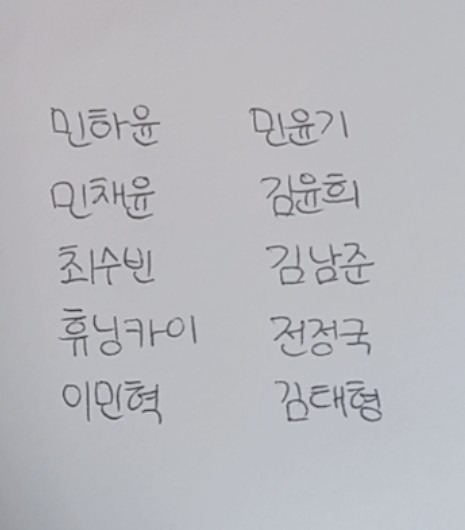 민하윤 민윤기
민채윤 김윤희
최수빈 김남준
휴닝카이 전정국
이민혁 김태형